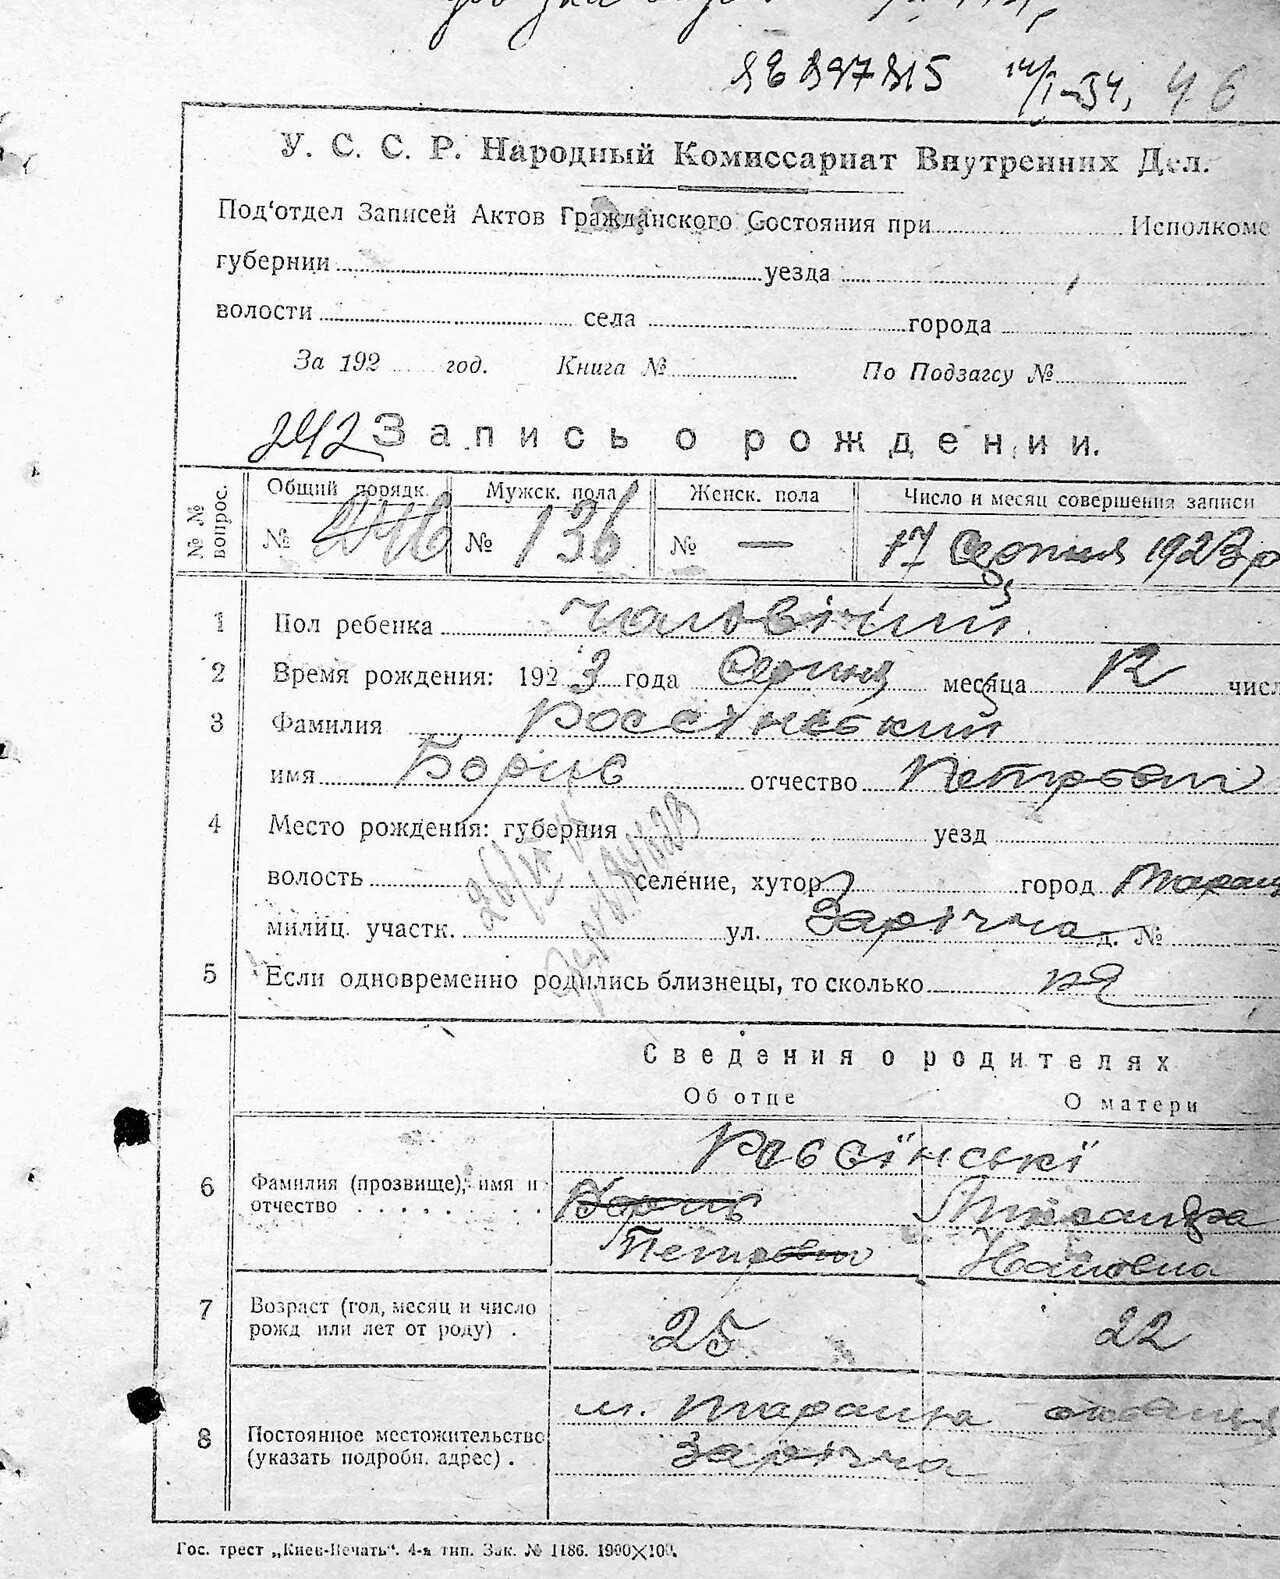 У. С. С. Р. Народный Комиссариат Внутренних Дел.
Под‘отдел Записей Актов Гражданского Состояния при Исполкоме
губернии уезда
волости села города
За 192 год. Книга № По Подзагсу №
242 Запись о рождении.
№ № вопрос.
Общий порядк. Мужск. пола Женск. пола Число и месяц совершения записи
№ 246 № 136 № — 17 Серпня 1923 р
1 Пол ребенка чоловічий
2 Время рождения: 1923 года Серпня месяца 12 числ
3 Фамилия Россінський
имя Борис отчество Петрович
4 Место рождения: губерния уезд
волость селение, хутор город Таращ
милиц. участк. ул. Зарічча д. №
5 Если одновременно родились близнецы, то сколько
Сведения о родителях
Об отце О матери
Россінські
6 Фамилия (прозвище), имя и отчество
Борис
Петрович Івановна
7 Возраст (год, месяц и число рожд или лет от роду) . 25 22
8 Постоянное местожительство (указать подробн. адрес) .
м. Тараща
Зарічча
Гос. трест „Киев-Печать“. 4-я тип. Зак. № 1186. 1900×100.